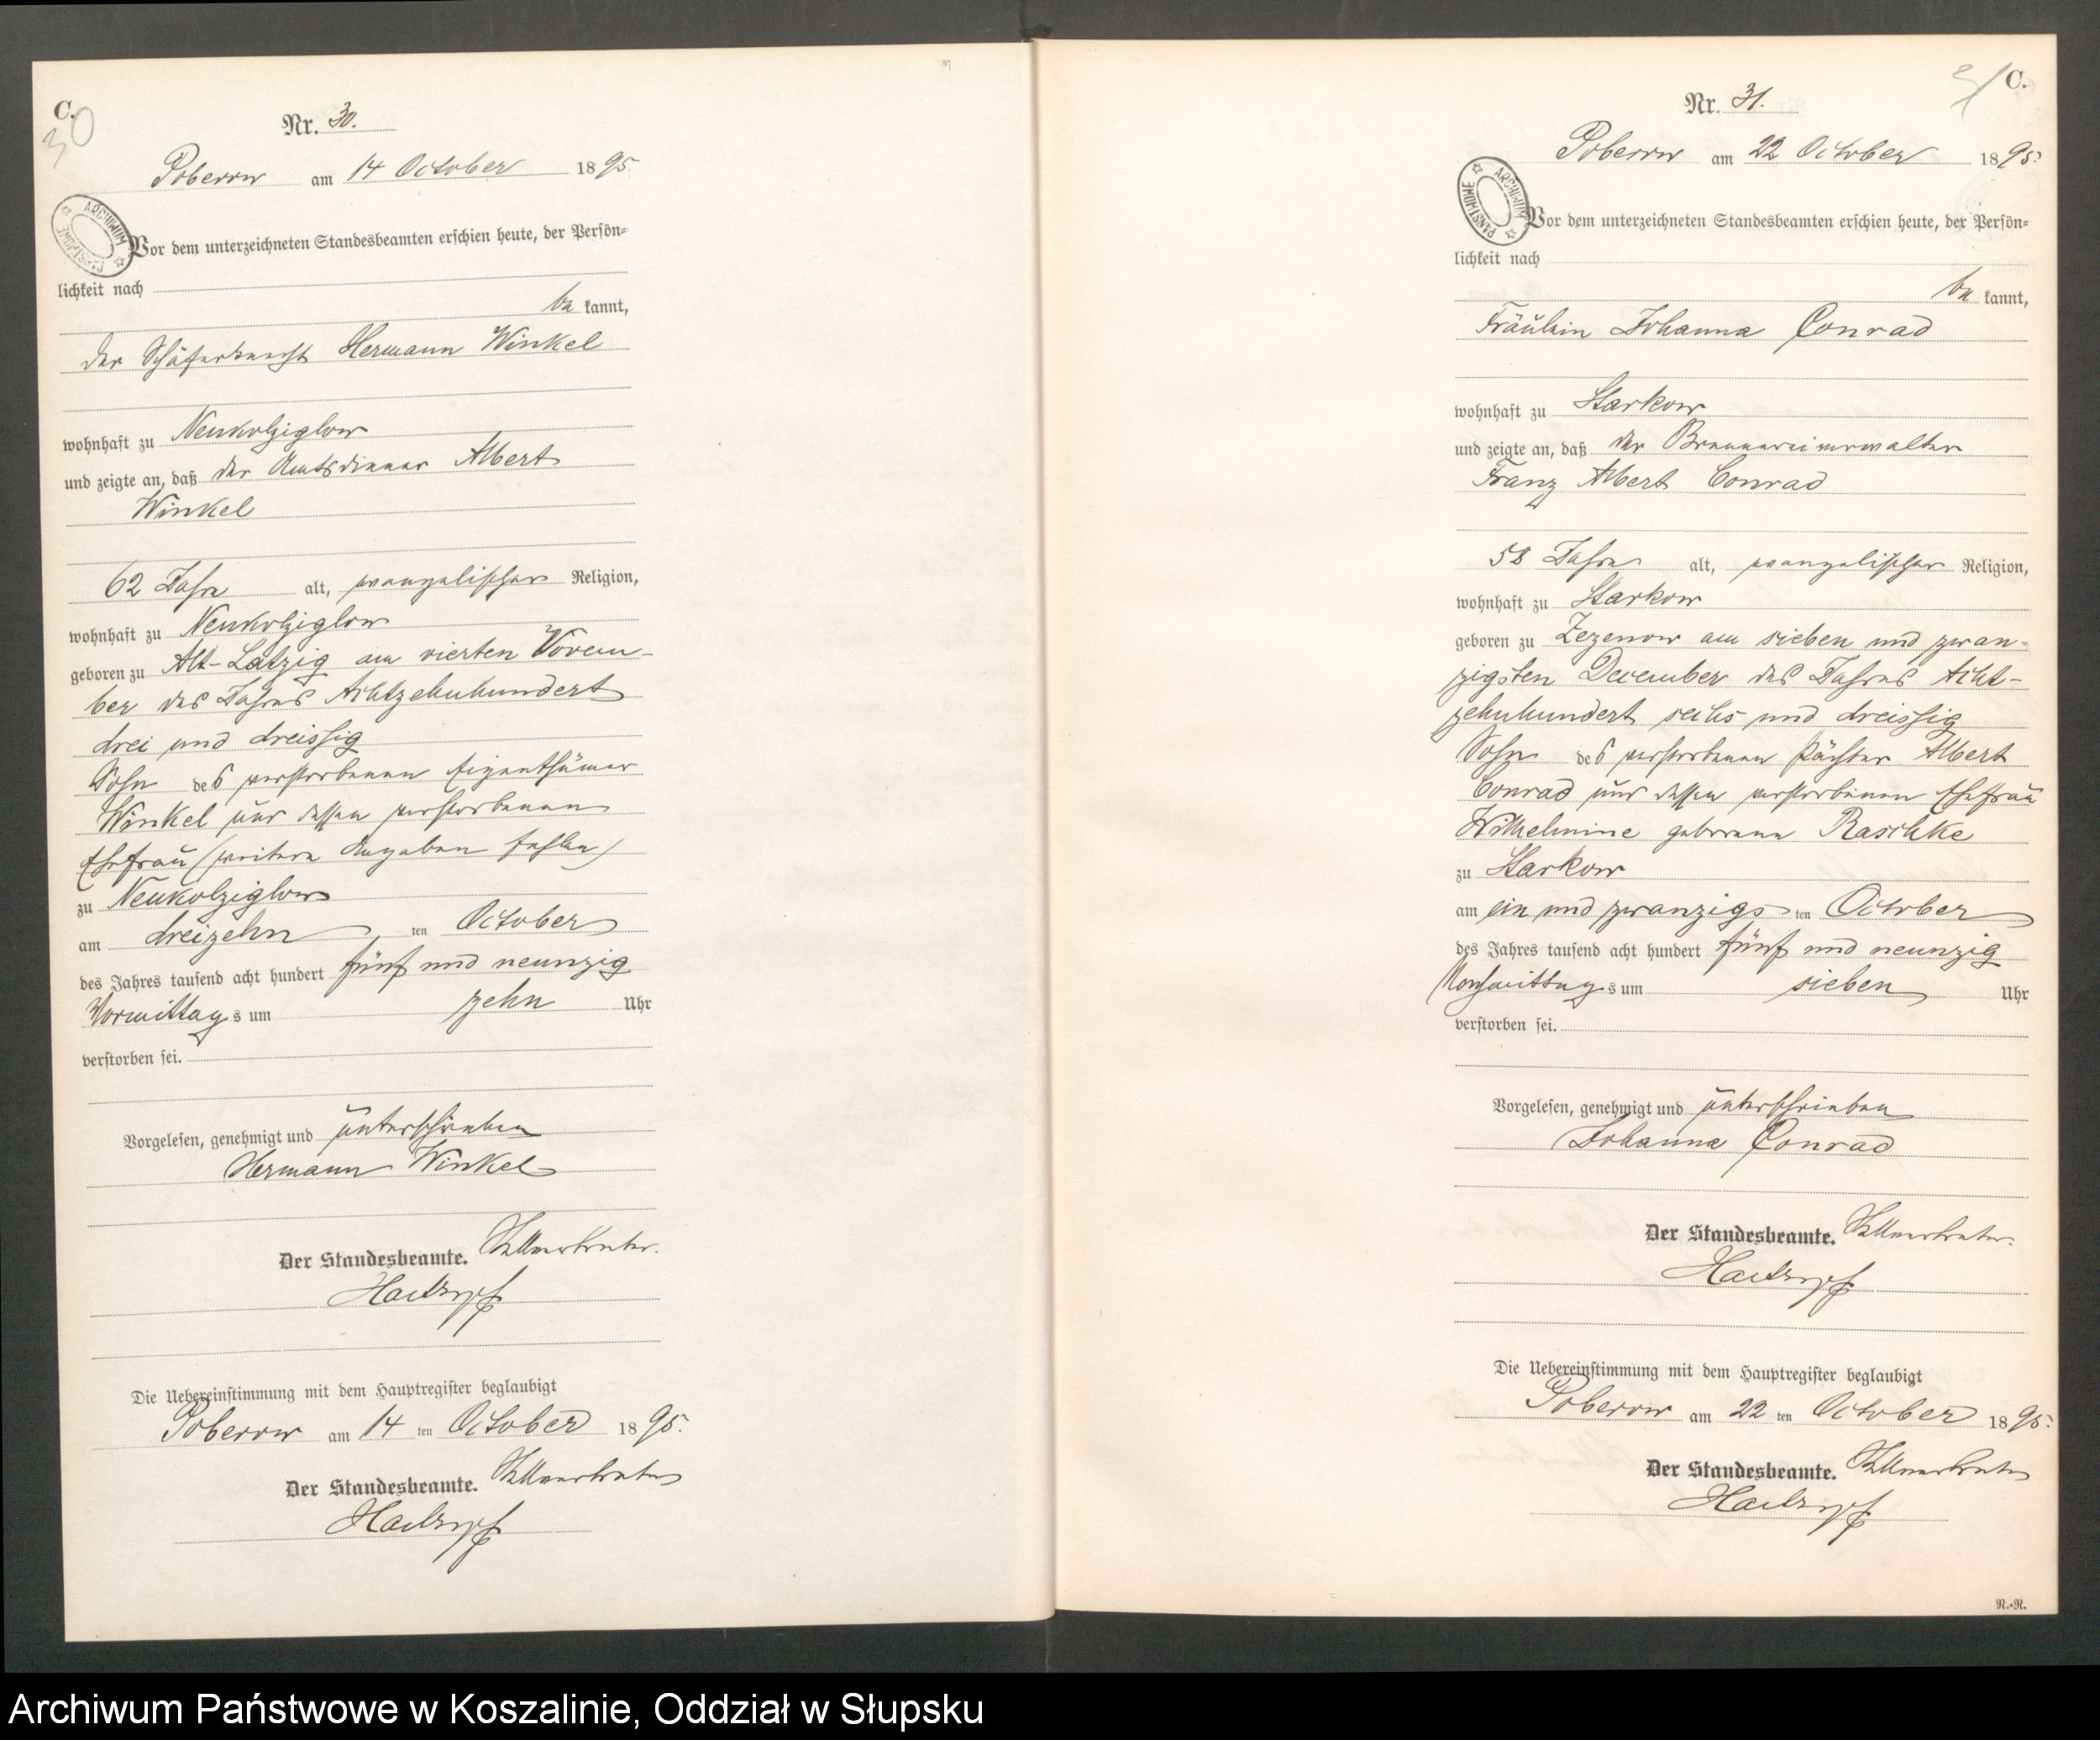 C.
30
Nr. 30.
Poberow am 14 October 1895.
ARCHIWUM PAŃSTWOWE
Vor dem unterzeichneten Standesbeamten erschien heute, der Persön-
lichkeit nach
be kannt,
der Schäferknecht Hermann Winkel
wohnhaft zu Neukolziglow
und zeigte an, daß der Amtsdiener Albert
Winkel
62 Jahre alt, evangelischer Religion,
wohnhaft zu Neukolziglow
geboren zu Alt-Latzig am vierten Novem-
ber des Jahres Achtzehnhundert
drei und dreissig
Sohn des verstorbenen Eigenthümer
Winkel und dessen verstorbenen
Ehefrau (weitere Angaben fehlen)
zu Neukolziglow
am dreizehn ten October
des Jahres tausend acht hundert fünf und neunzig
Vormittags um zehn Uhr
verstorben sei.
Vorgelesen, genehmigt und unterschrieben
Hermann Winkel
Der Standesbeamte. Stellvertreter.
Die Uebereinstimmung mit dem Hauptregister beglaubigt
Poberow am 14 ten October 1895.
Der Standesbeamte. Stellvertreter
31
C.
Nr. 31.
Poberow am 22 October 1895.
ARCHIWUM PAŃSTWOWE
Vor dem unterzeichneten Standesbeamten erschien heute, der Persön-
lichkeit nach
be kannt,
Fräulein Johanna Conrad
wohnhaft zu Starkow
und zeigte an, daß der Brennereiverwalter
Franz Albert Conrad
58 Jahre alt, evangelischer Religion,
wohnhaft zu Starkow
geboren zu Zezenow am sieben und zwan-
zigsten December des Jahres Acht-
zehnhundert sechs und dreissig
Sohn des verstorbenen Pächter Albert
Conrad und dessen verstorbenen Ehefrau
Wilhelmine geborene Raschke
zu Starkow
am ein und zwanzigs ten October
des Jahres tausend acht hundert fünf und neunzig
Nachmittags um sieben Uhr
verstorben sei.
Vorgelesen, genehmigt und unterschrieben
Johanna Conrad
Der Standesbeamte. Stellvertreter.
Die Uebereinstimmung mit dem Hauptregister beglaubigt
Poberow am 22 ten October 1895.
Der Standesbeamte. Stellvertreter
N.-R.
Archiwum Państwowe w Koszalinie, Oddział w Słupsku